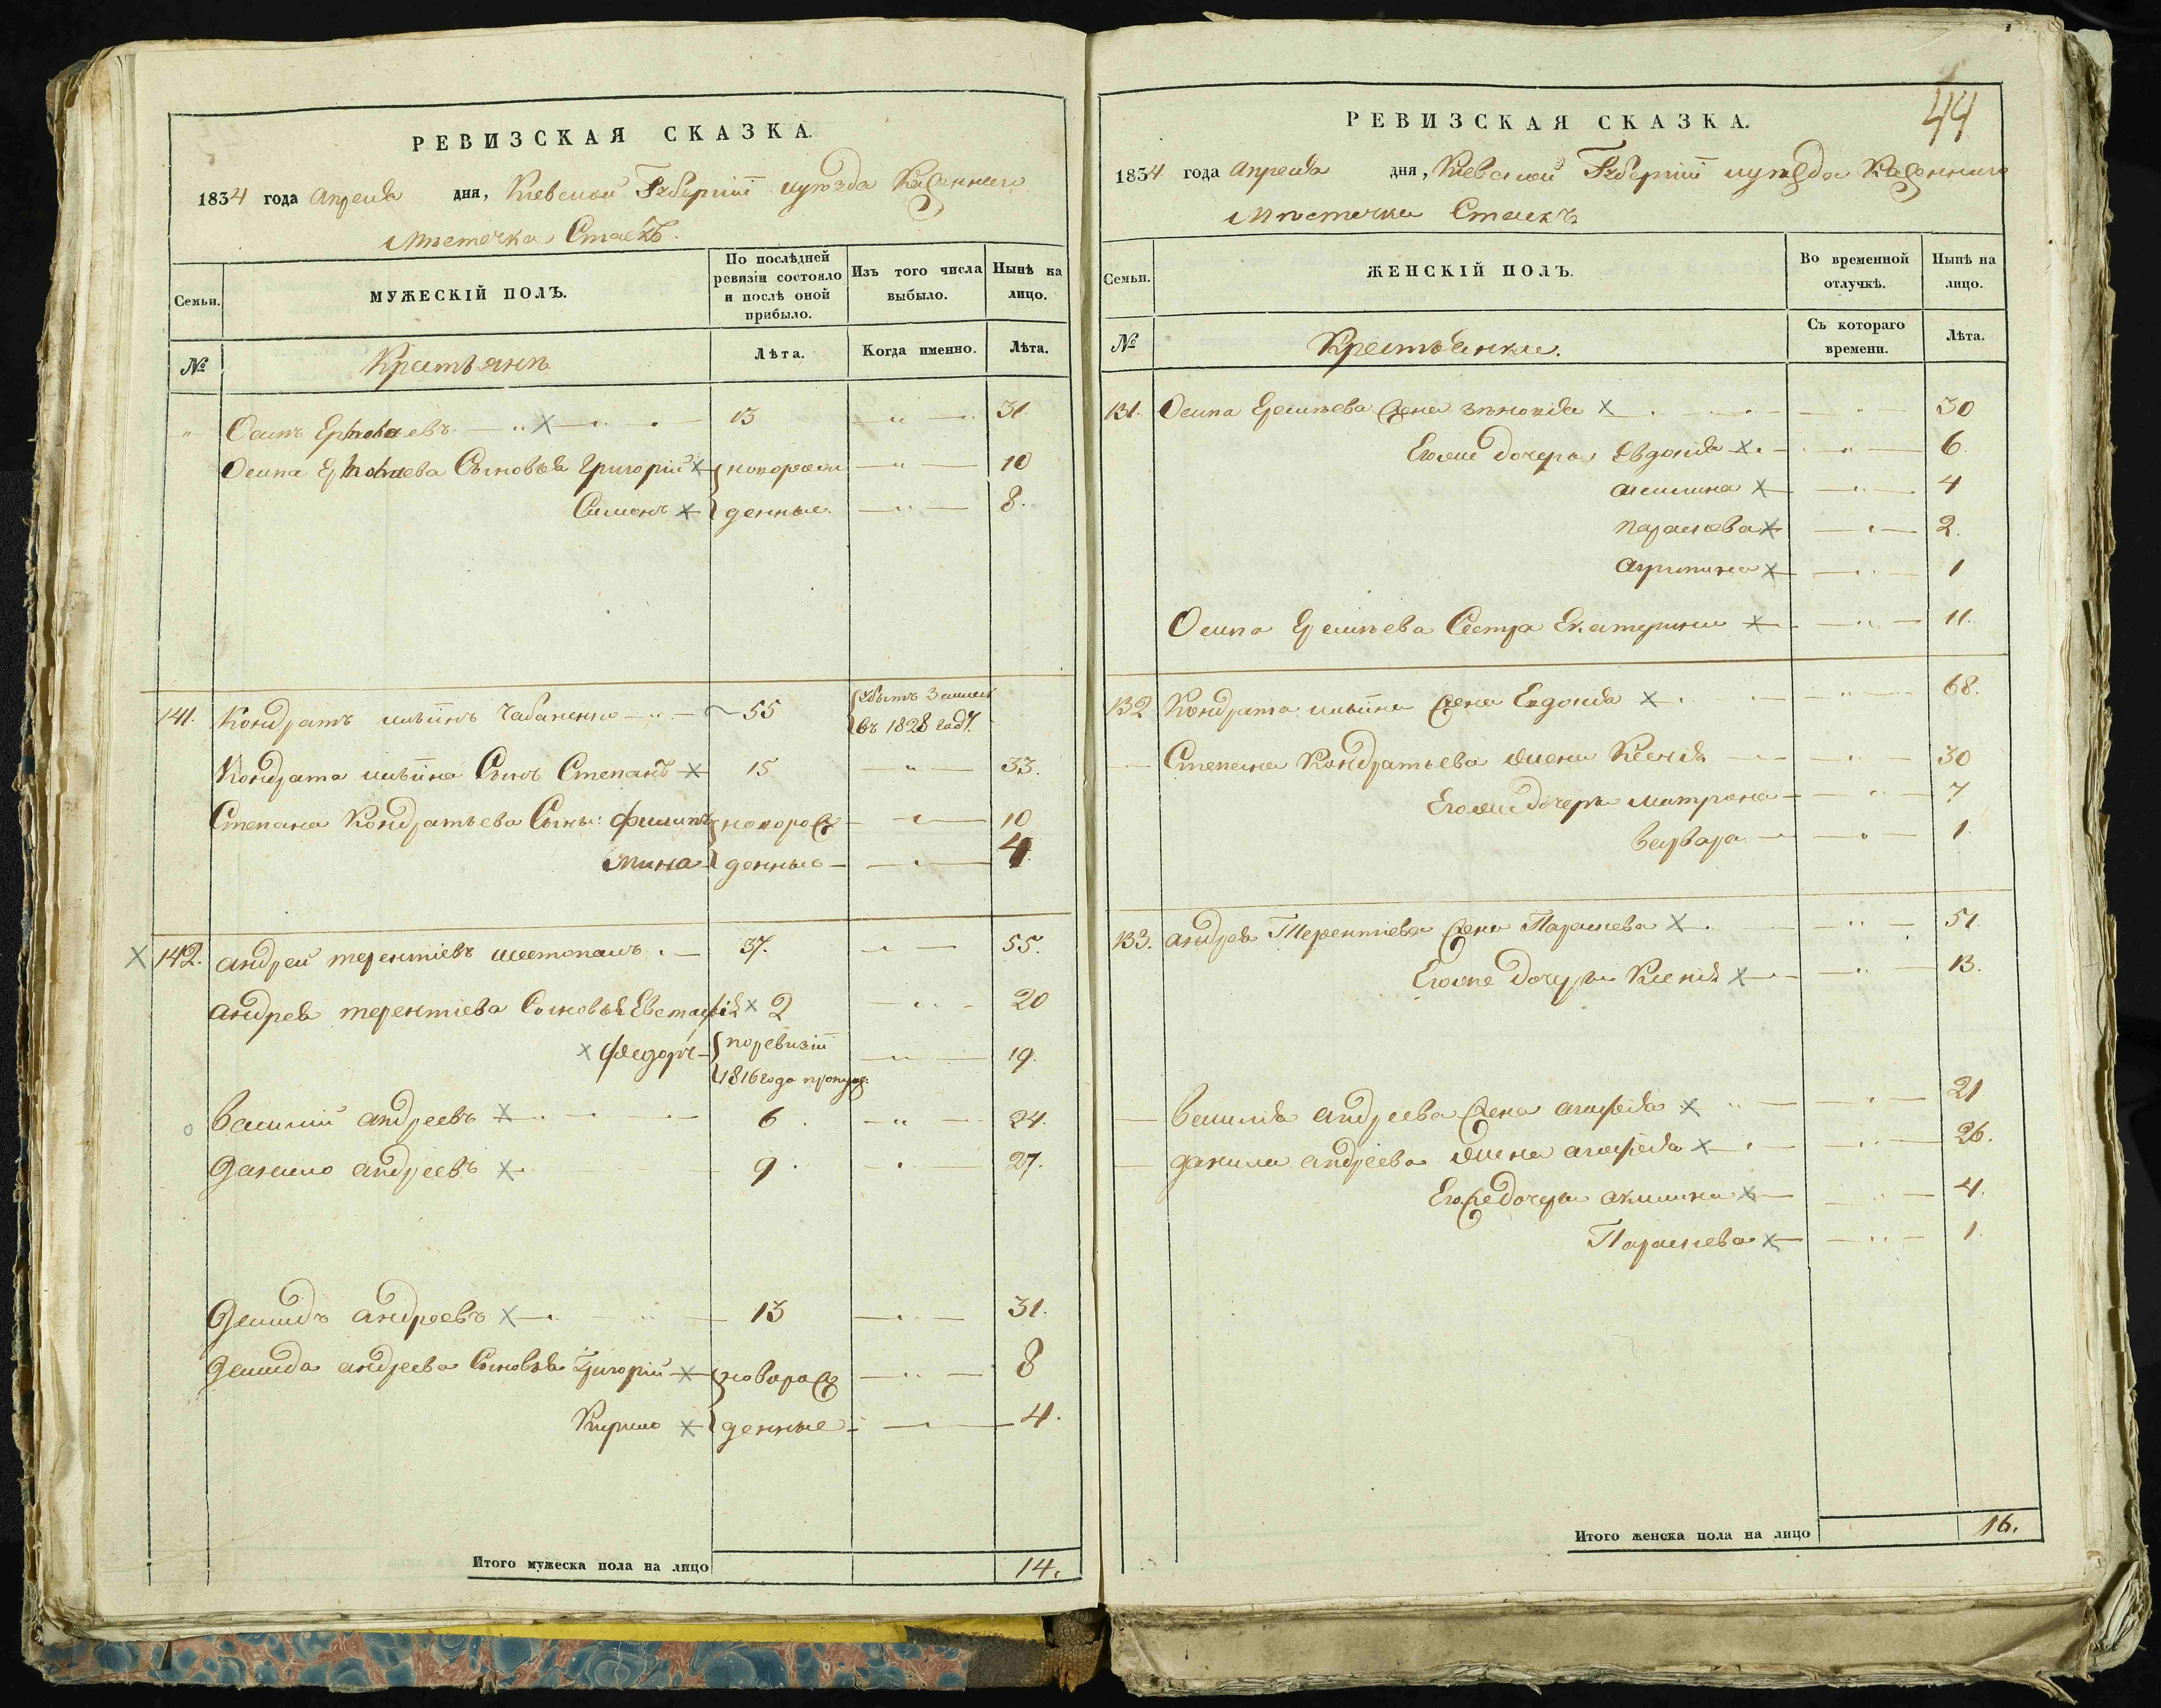 РЕВИЗСКАЯ СКАЗКА.
1834 года Апреля дня, Кіевской Губерніи и уезда Казеннаго
Местечка Стаекъ.
Семьи. МУЖЕСКІЙ ПОЛЪ. По послѣдней ревизіи состояло и послѣ оной прибыло. Изъ того числа выбыло. Нынѣ на лицо.
№ Крестьяне Лѣта. Когда именно. Лѣта.
" Осипъ 13 " 31.
Осипа Сыновья Григорій новорож 10
Симонъ денные. 8.
141. Кондратъ Чабаненко 55 въ 1828 году.
Кондрата Сынъ Степанъ 15 33.
Степана Кондратьева Сыны: Филипъ новорож 10
Мина денные 4
142. андрей терентіевъ 37. 55.
андрея терентіева Сыновья Евстафій 2 20
Федоръ по ревизіи 19.
1816 года пропущ:
Василій андреевъ 6. 24.
Данило андреевъ 9. 27.
Демидъ андреевъ 13 31.
Демида андреева Сыновья Григорій новорож 8
Кирило денные 4.
Итого мужеска пола на лицо 14.
44
РЕВИЗСКАЯ СКАЗКА.
1834 года Апреля дня, Кіевской Губерніи и уезда Казеннаго
Местечка Стаекъ
Семьи. ЖЕНСКІЙ ПОЛЪ. Во временной отлучкѣ. Нынѣ на лицо.
№ Крестьянки. Съ котораго времени. Лѣта.
131. Осипа Еремеева жена 30
Егоже дочери Евдокія 6.
акилина 4
параскева 2.
агрипина 1
Осипа Еремеева Сестра Екатерина 11.
132 Кондрата жена Евдокія 68.
Степана Кондратьева жена Ксенія 30
Егоже дочери матрона 7
варвара 1.
133. андрея Терентіева жена Параскева 51
Егоже дочери Ксенія 13.
Василія андреева жена агафія 21
данила андреева жена агафія 26.
Егоже дочери акилина 4.
Параскева 1.
Итого женска пола на лицо 16.